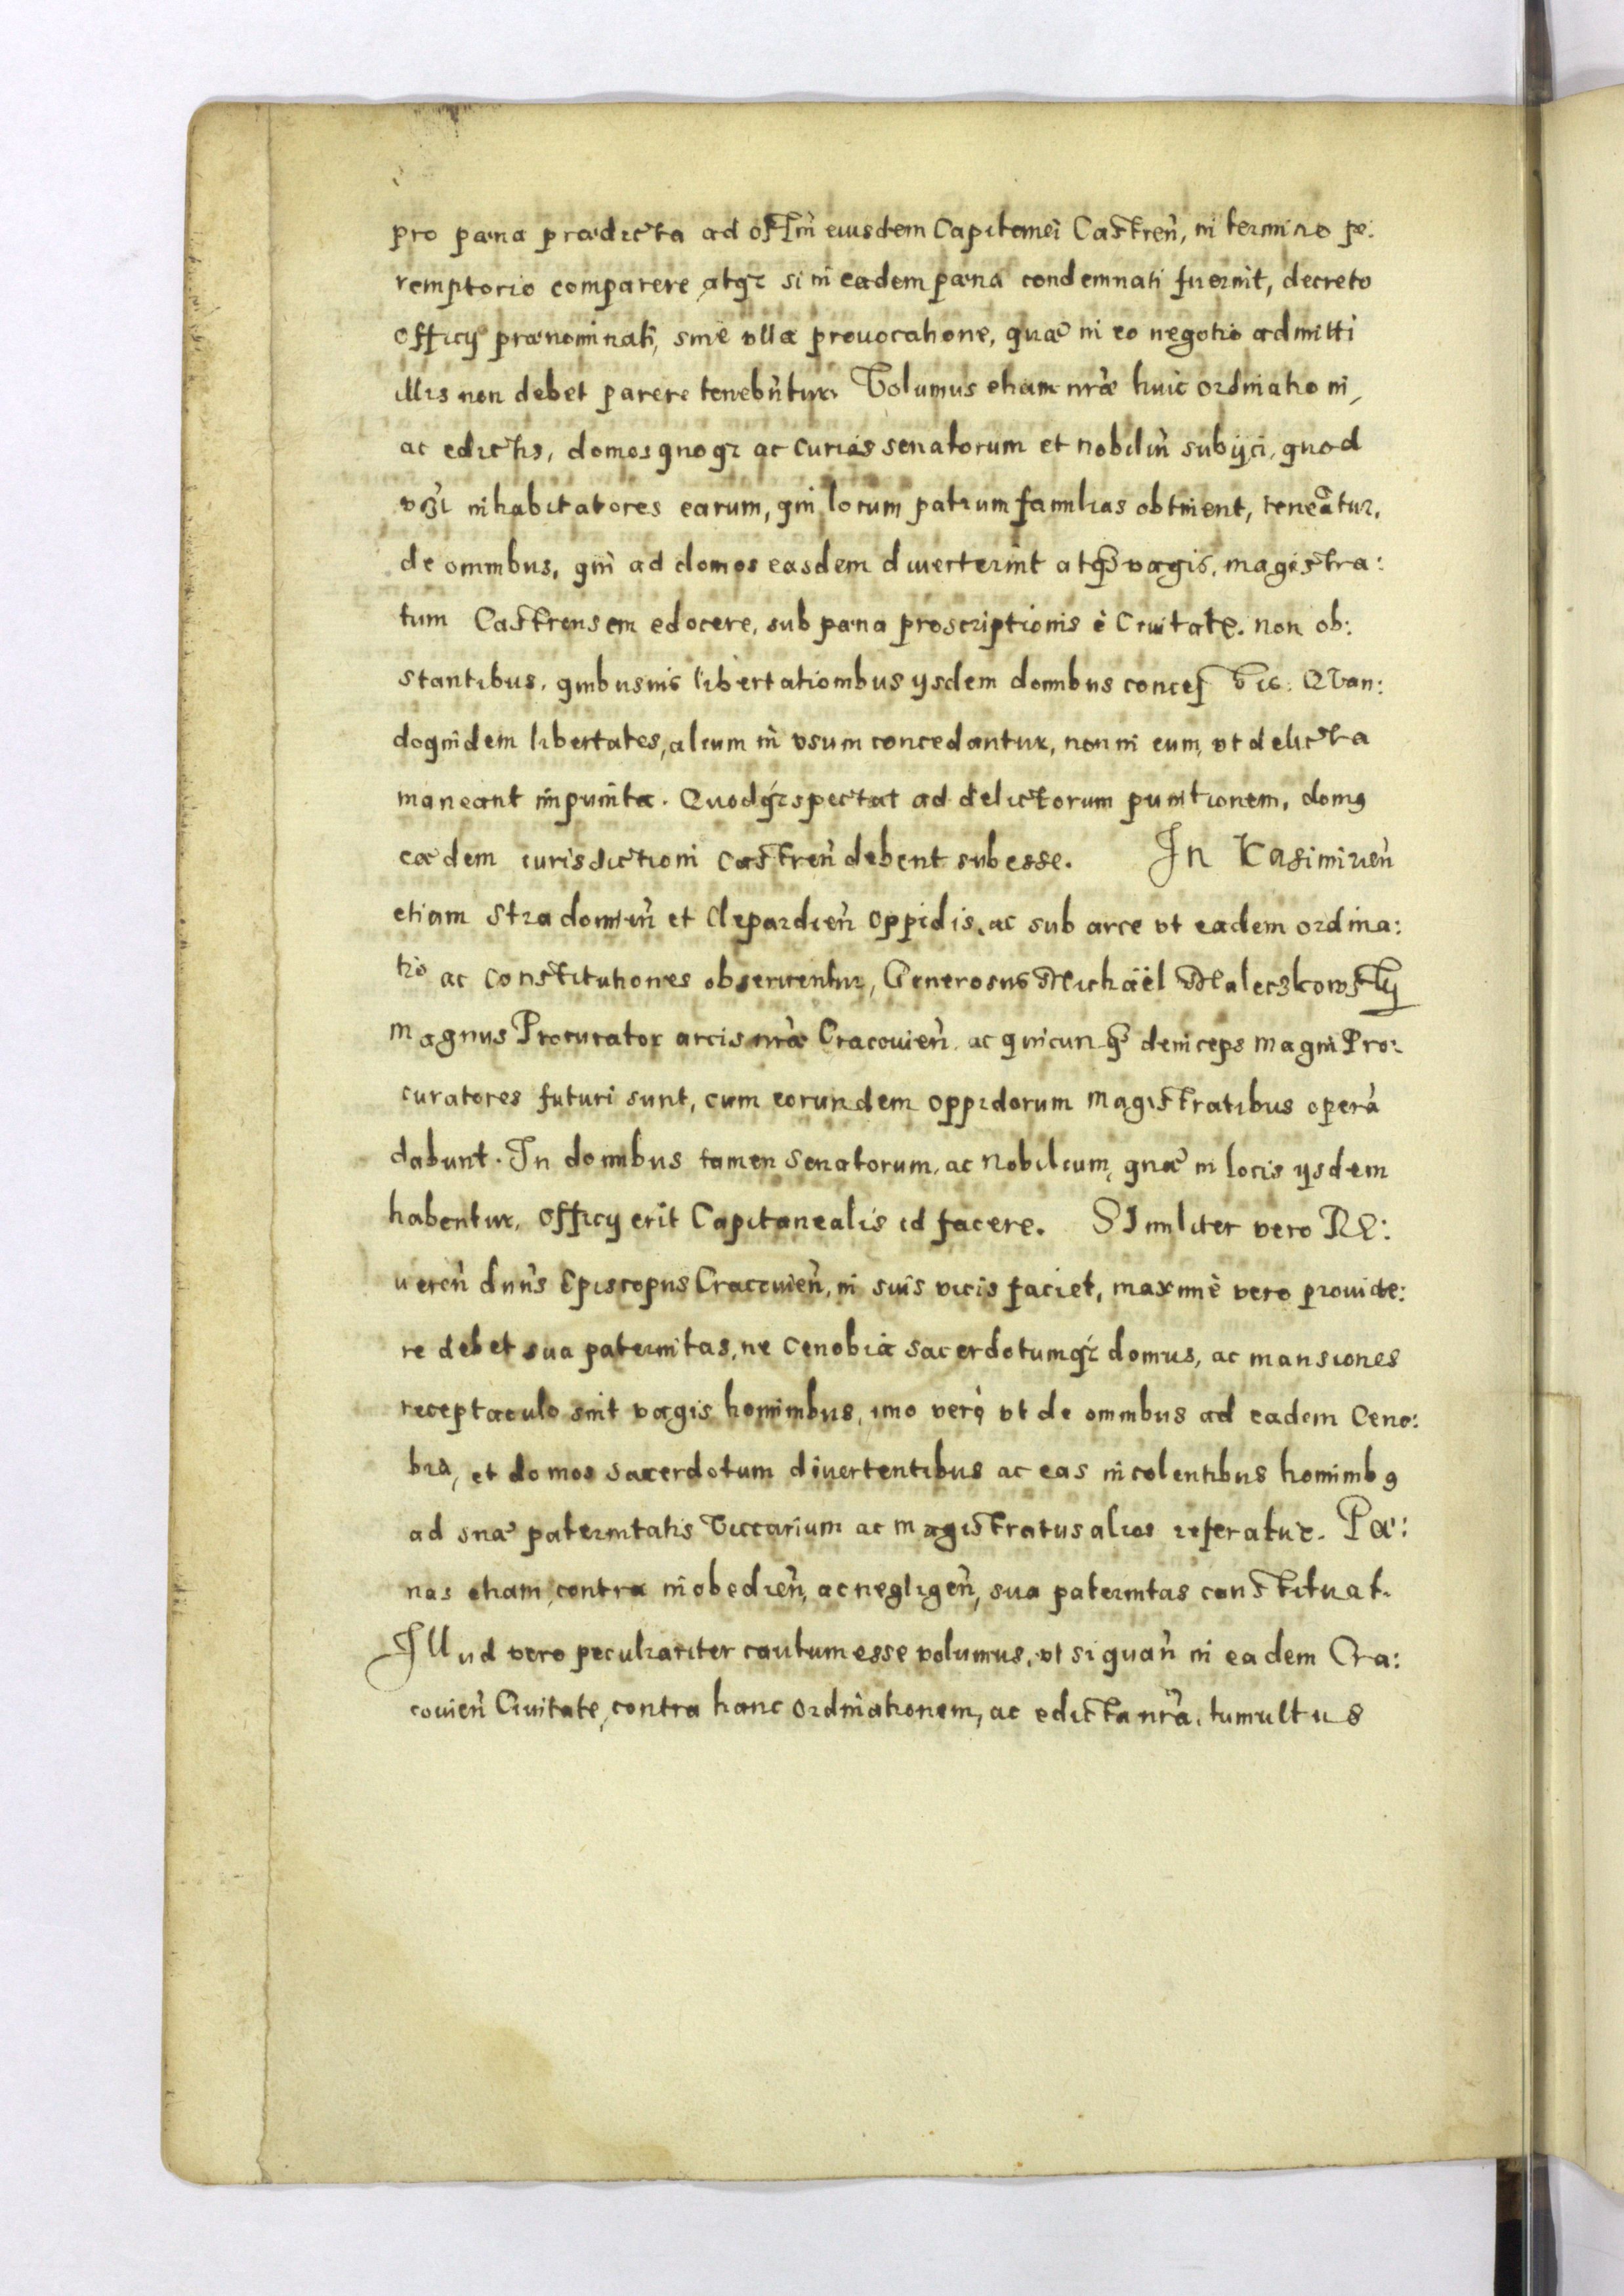 pro pæna prædicta ad offm̃ eiusdem Capitanei Castren̄, in termino pe:
remptorio comparere atqꝫ si in eadem pæna condemnati fuerint, decreto
officij prænominati, sine vlla prouocatione, quæ in eo negotio admitti
illis non debet parere tenebūtur. Volumus etiam nr̄æ huic ordinatio ni,
ac edictis, domos quoqꝫ ac curias senatorum et nobiliū subijci, quod
vłi inhabitatores earum, qui locum patrum familias obtinent, teneātur,
de omnibus, qui ad domos easdem diuerterint atqꝫ vagis, magistra:
tum Castrensem edocere, sub pæna proscriptionis è Ciuitate. non ob:
stantibus, quibusuis libertationibus ysdem domibus concess Vis. QVan:
doquidem libertates, alium in vsum concedantur, non in eum, vt delicta
maneant impunita. Quodqꝫ spectat ad delictorum punitionem, domꝰ
eædem iurisdictioni castren̄ debent subesse. In Kasimirien̄
etiam Stradomien̄ et Clepardien̄ oppidis, ac sub arce vt eadem ordina:
tio ac constitutiones obseruentur, Generosus Michaël Maleczkowsky
magnus Procurator arcis nr̄æ Cracouien̄ ac quicunqꝫ deinceps magni Pro:
curatores futuri sunt, cum eorundem oppidorum magistratibus operā
dabunt. In domibus tamen Senatorum, ac Nobilium, quæ in locis ysdem
habentur, officij erit Capitanealis id facere. SImiliter vero RE:
ueren̄ dnūs Episcopus Cracouien̄, in suis vicis faciet, maximè vero prouide:
re debet sua paternitas, ne cenobia sacerdotumqꝫ domus, ac mansiones
receptaculo sint vagis hominibus, imo verò vt de omnibus ad eadem Ceno:
bia, et domos sacerdotum diuertentibus ac eas incolentibus hominibꝰ
ad suæ paternitatis Viccarium ac magistratus alios referatur. Pæ:
nas etiam, contra inobedien̄, ac negligen̄, sua paternitas constituat.
Illud vero peculiariter cautum esse volumus, vt si quan̄ in eadem Cra:
couien̄ Ciuitate, contra hanc ordinationem, ac edicta nr̄a, tumultus